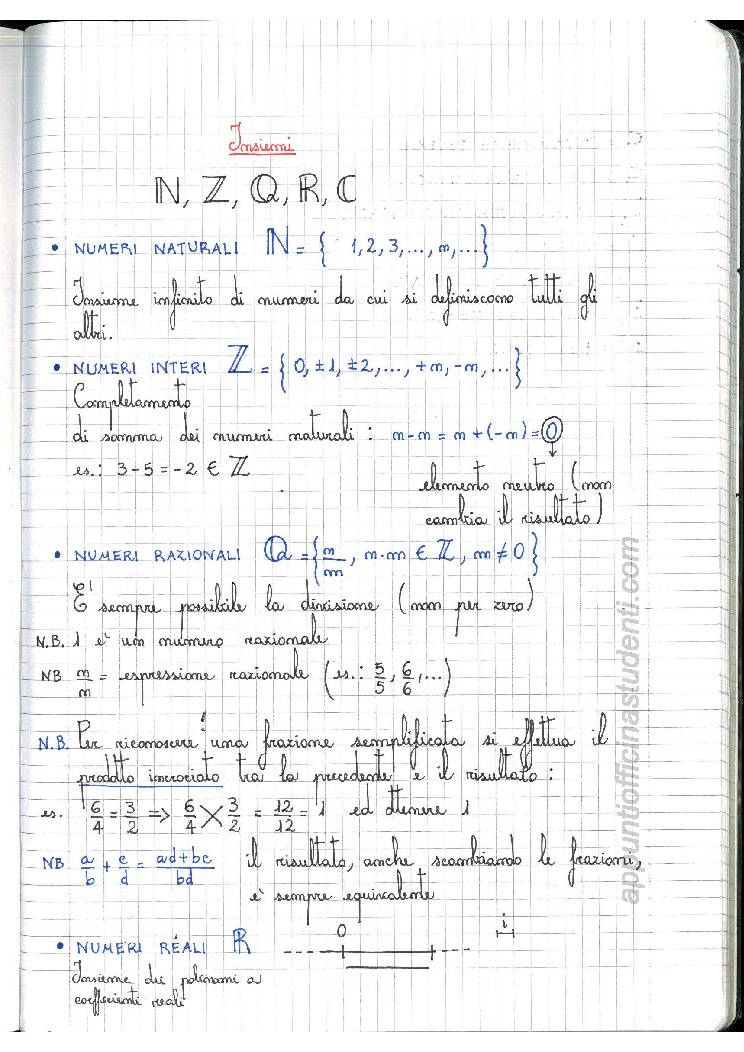 Insiemi
ℕ, ℤ, ℚ, ℝ, ℂ
• NUMERI NATURALI ℕ = { 1, 2, 3, ..., n, ... }
Insieme infinito di numeri da cui si definiscono tutti gli
altri.
• NUMERI INTERI ℤ = { 0, ±1, ±2, ..., +n, -n, ... }
Completamento
di somma dei numeri naturali : n-n = n + (-n) = 0
es.: 3-5 = -2 ∈ ℤ
elemento neutro (non
cambia il risultato)
• NUMERI RAZIONALI ℚ = { m/n, m·n ∈ ℤ, n ≠ 0 }
E' sempre possibile la divisione (non per zero)
N.B. 1 è un numero razionale
NB n/n = espressione razionale (es.: 5/5, 6/6, ...)
N.B. Per riconoscere una frazione semplificata si effettua il
prodotto incrociato tra la precedente e il risultato :
es. 6/4 = 3/2 => 6/4 X 3/2 = 12/12 = 1 ed ottenere 1
NB a/b + c/d = ad+bc/bd il risultato, anche scambiando le frazioni,
è sempre equivalente
• NUMERI REALI ℝ
0
i
Insieme dei polinomi a
coefficienti reali
appuntiofficinastudenti.com